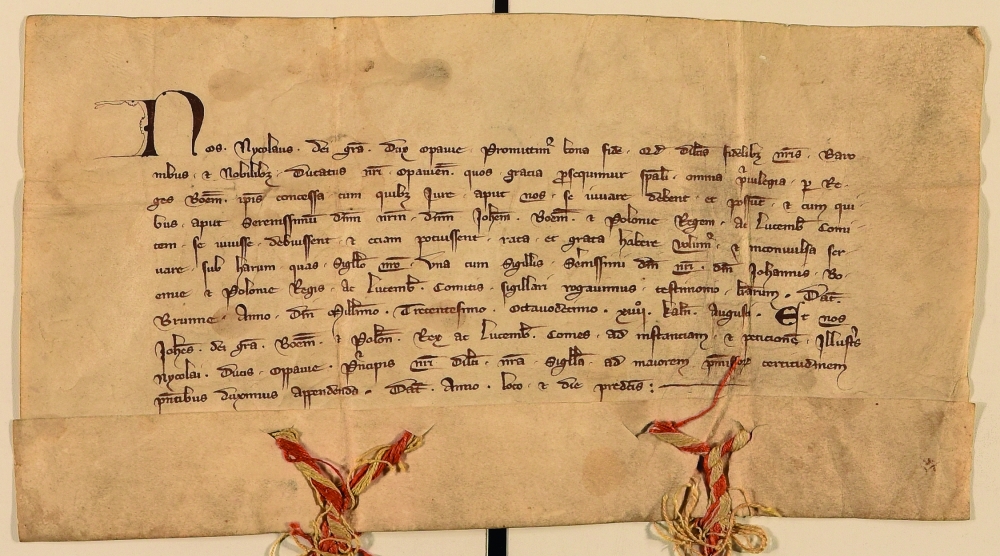 Nos. Nycolaus. dei gra. Dux opavie. Promittim' bona fide. qd dilctis fidelibz nris. Baro
nibus. et Nobilibz. Ducatus nri. opavien. quos gracia psequimur spali. omnia pvilegia. per Re.
ges Boem. ipis concessa. cum quibz Jure. aput nos. se iuvare debent. et possut. et cum qui
bus. aput Serenissimu dnm nrm. dnm Johem. Boem. et Polonie Regem. ac Lucemb. Comi
tem. se iuvisse. debuissent. et eciam potuissent. rata. et grata habere volum'. et inconvulsa ser
vare. sub harum. quas. Sigillo nro. Una cum Sigillis. Serenissimi dni nri. dni Johannis. Bo
emie et Polonie Regis. ac Lucemb. Comitis. sigillari rogavimus. testimonio lrarum. Dat.
Brunne. Anno. dni Millimo. Trecentesimo. Octavodecimo. kaln. Augusti. Et nos
Johes. dei gra. Boem. et Polon. Rex ac Lucemb. Comes. ad instanciam. et peticione. Illustris
Nycolai. Ducis. Oppavie. Pncipis nri dilcti. nra Sigilla. ad maiorem pmissor certitudinem
pntibus duximus appendenda. Dat. Anno. loco. et die predcis :